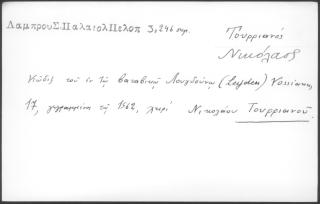 Λαμπρου Σ. Παλαιολ Πελοπ 3, 246 σημ.
Τουρριανός
Νικόλαος
Κῶδιξ τοῦ ἐν τῇ βαταβικῇ Λουγδούνῳ (Leyden) Vossianus
17, γεγραμμένος τῷ 1562, χειρὶ Νικολάου Τουρριανοῦ.